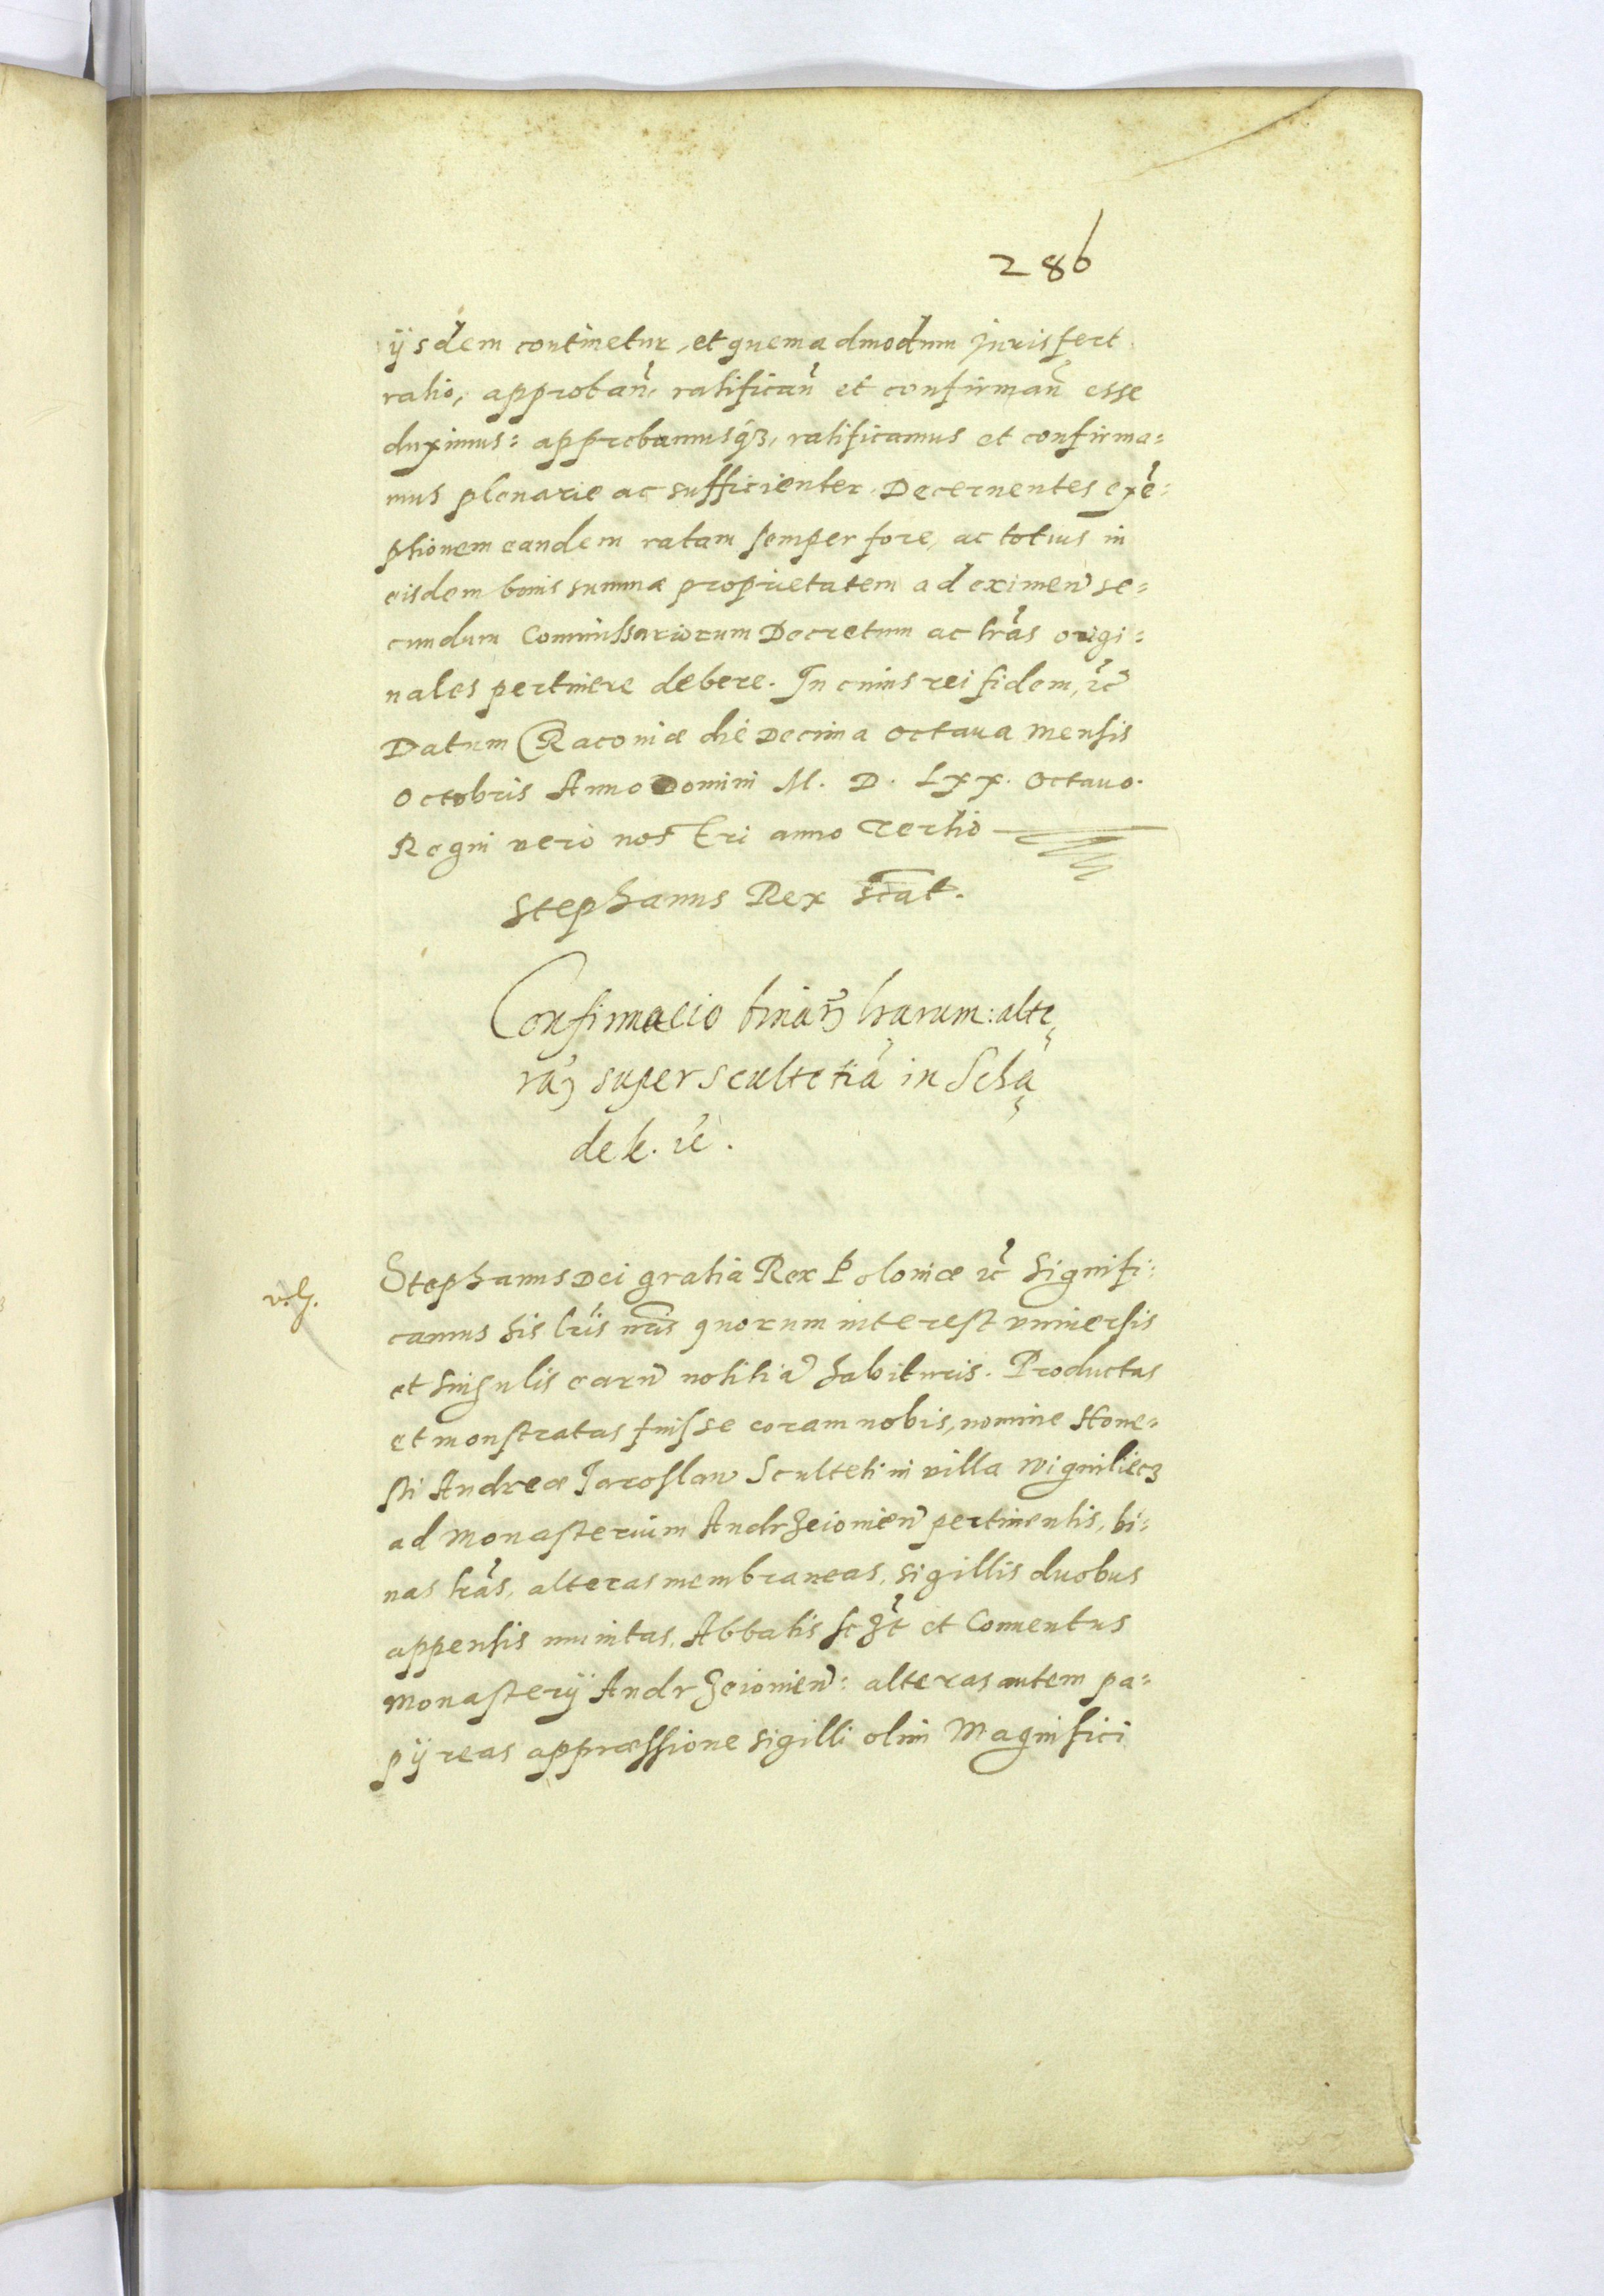 286
ijsdem continetur, et quemadmodum juris fert
ratio, approbañ, ratificañ et confirmañ esse
duximus: approbamusq₃, ratificamus et confirma=
mus plenarie ac sufficienter. Decernentes exē=
ptionem eandem ratam semper fore, ac totius in
eisdem bonis summæ proprietatem ad eximen̄ se=
cundum Commissariorum Decretum ac lrãs origi=
nales pertinere debere. In cuius rei fidem, ꝛc̃
Datum Cracoviæ die Decima octaua mensis
Octobris Anno Domini M. D. Lxx. octauo.
Regni verò nostri anno tertio
Stephanus Rex sc̃at.
Confirmacio binaꝝ lrarum: alte,
raꝝ super scultetiã in Scha,
dek. ꝛc̃.
v.G.
Stephanus Dei gratia Rex Poloniæ ꝛc̃ Signifi:
camus his lr̃is nr̃is quorum interest vniuersis
et singulis earū notitiā habituris. Productas
et monstratas fuisse coram nobis, nomine Hone=
sti Andreæ Jaroslaw Sculteti in villa Wigniliecz
ad Monasterium Andrzeiouien̄ pertinentis, bi:
nas lrãs, alteras membraneas, sigillis duobus
appensis munitas, Abbatis sczt̃ et Conuentus
Monasterij Andrzeiouien̄: alteras autem pa=
pijreas appræssione sigilli olim Magnifici